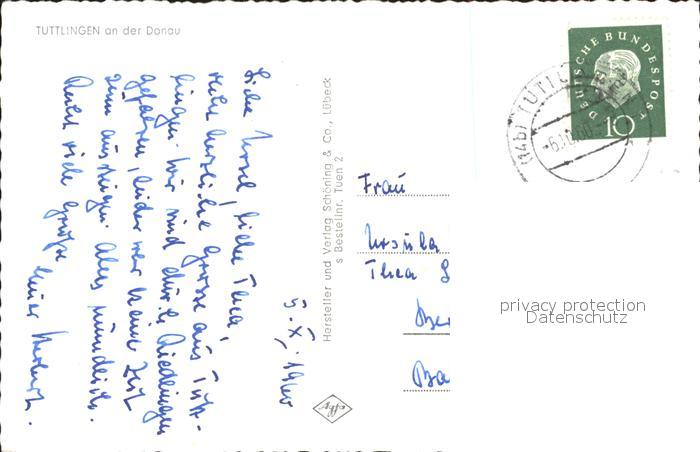 TUTTLINGEN an der Donau
5. X. 1960
Liebe Ursel, liebe Thea,
recht herzliche Grüsse aus Tutt-
lingen. Wir sind durch Riedlingen
gefahren, leider war keine Zeit
zum aussteigen. Alles mündlich.
Recht viele Grüße
Hersteller und Verlag Schöning & Co., Lübeck
s Bestellnr. Tuen 2
DEUTSCHE BUNDESPOST
10
(14b) TUTTL
Frau
Ursula
Thea S
Ber
Ba
privacy protection
Datenschutz